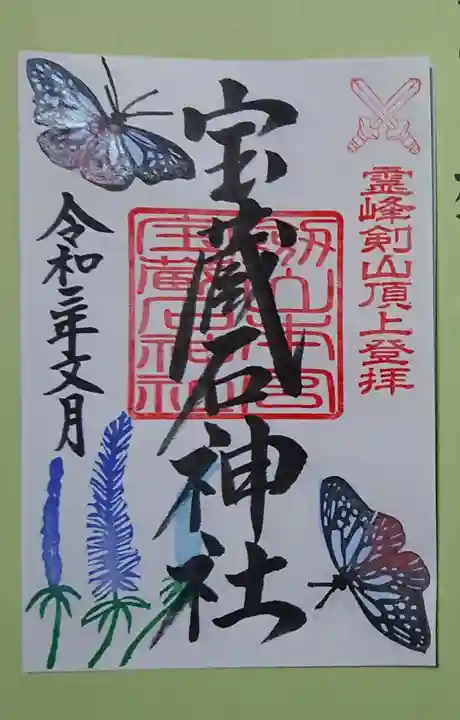 霊峰剣山頂上登拝
宝蔵石神社
劔山本宮
宝蔵石神社
令和三年文月